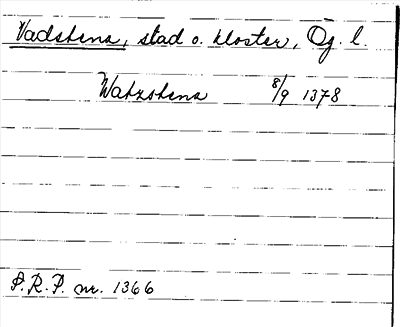 Vadstena, stad o. kloster, Ög. l.
Watzstena 8/9 1378
S.R.P. nr. 1366